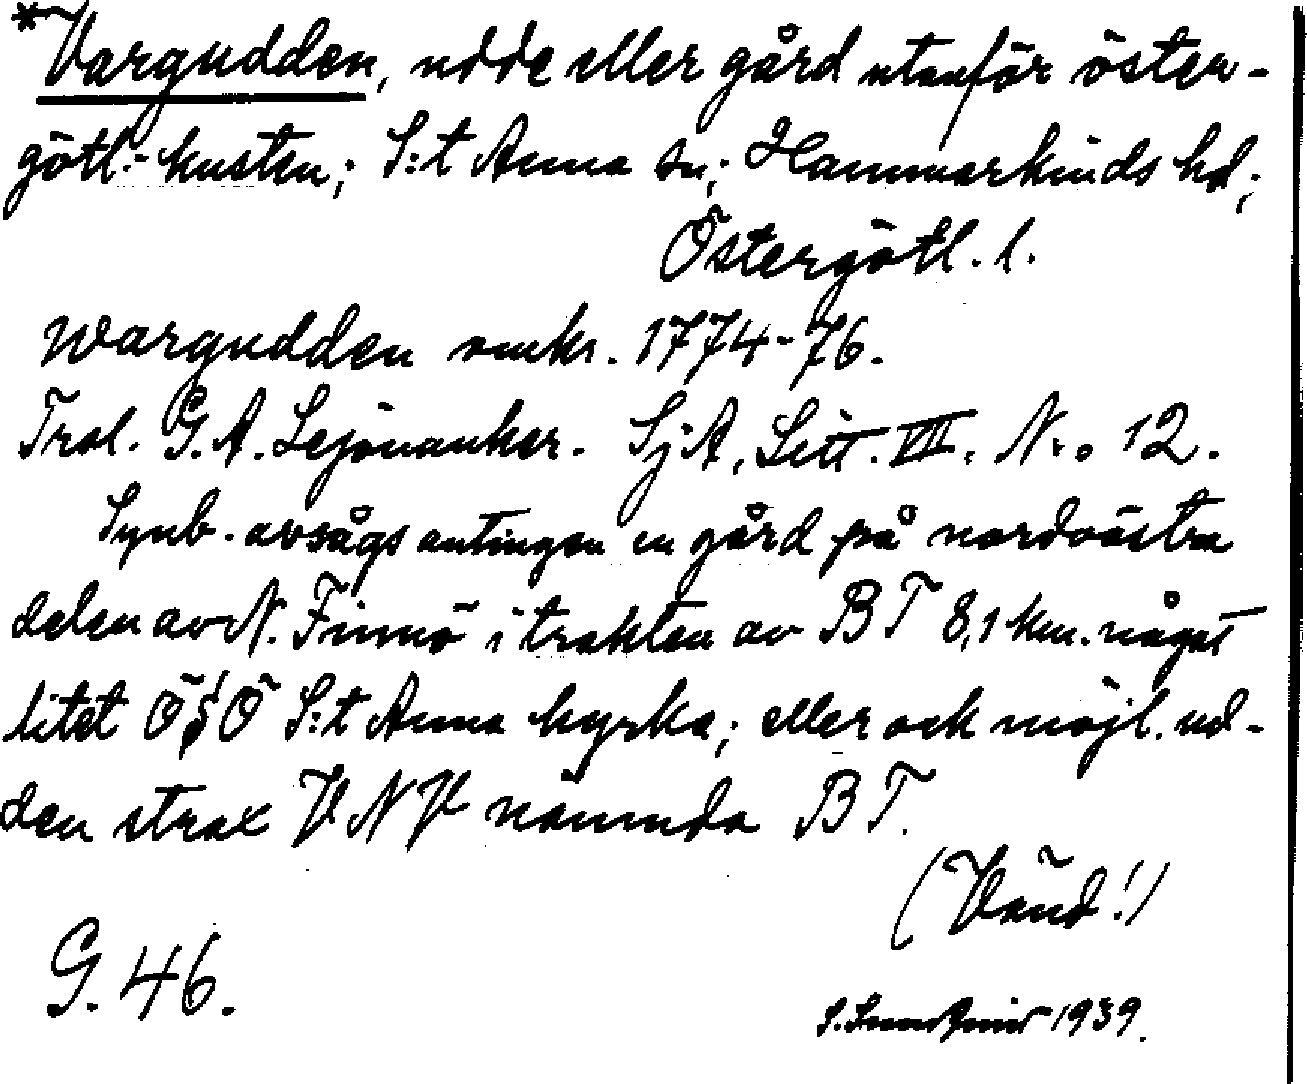 *Vargudden, udde eller gård utanför öster-
götl.-kusten; S:t Anna sn; Hammarkinds hd;
Östergötl. l.
Wargudden omkr. 1774-76.
Trol. G. A. Lejonanker. SjA, Litt. VII. N:o 12.
Synb. avsågs antingen en gård på nordvästra
delen av N. Finnö i trakten av BT 8,1 km. något
litet ÖSÖ S:t Anna kyrka; eller ock möjl. ud-
den strax VNV nämnda BT.
(Vänd!)
G. 46.
S. 1939.